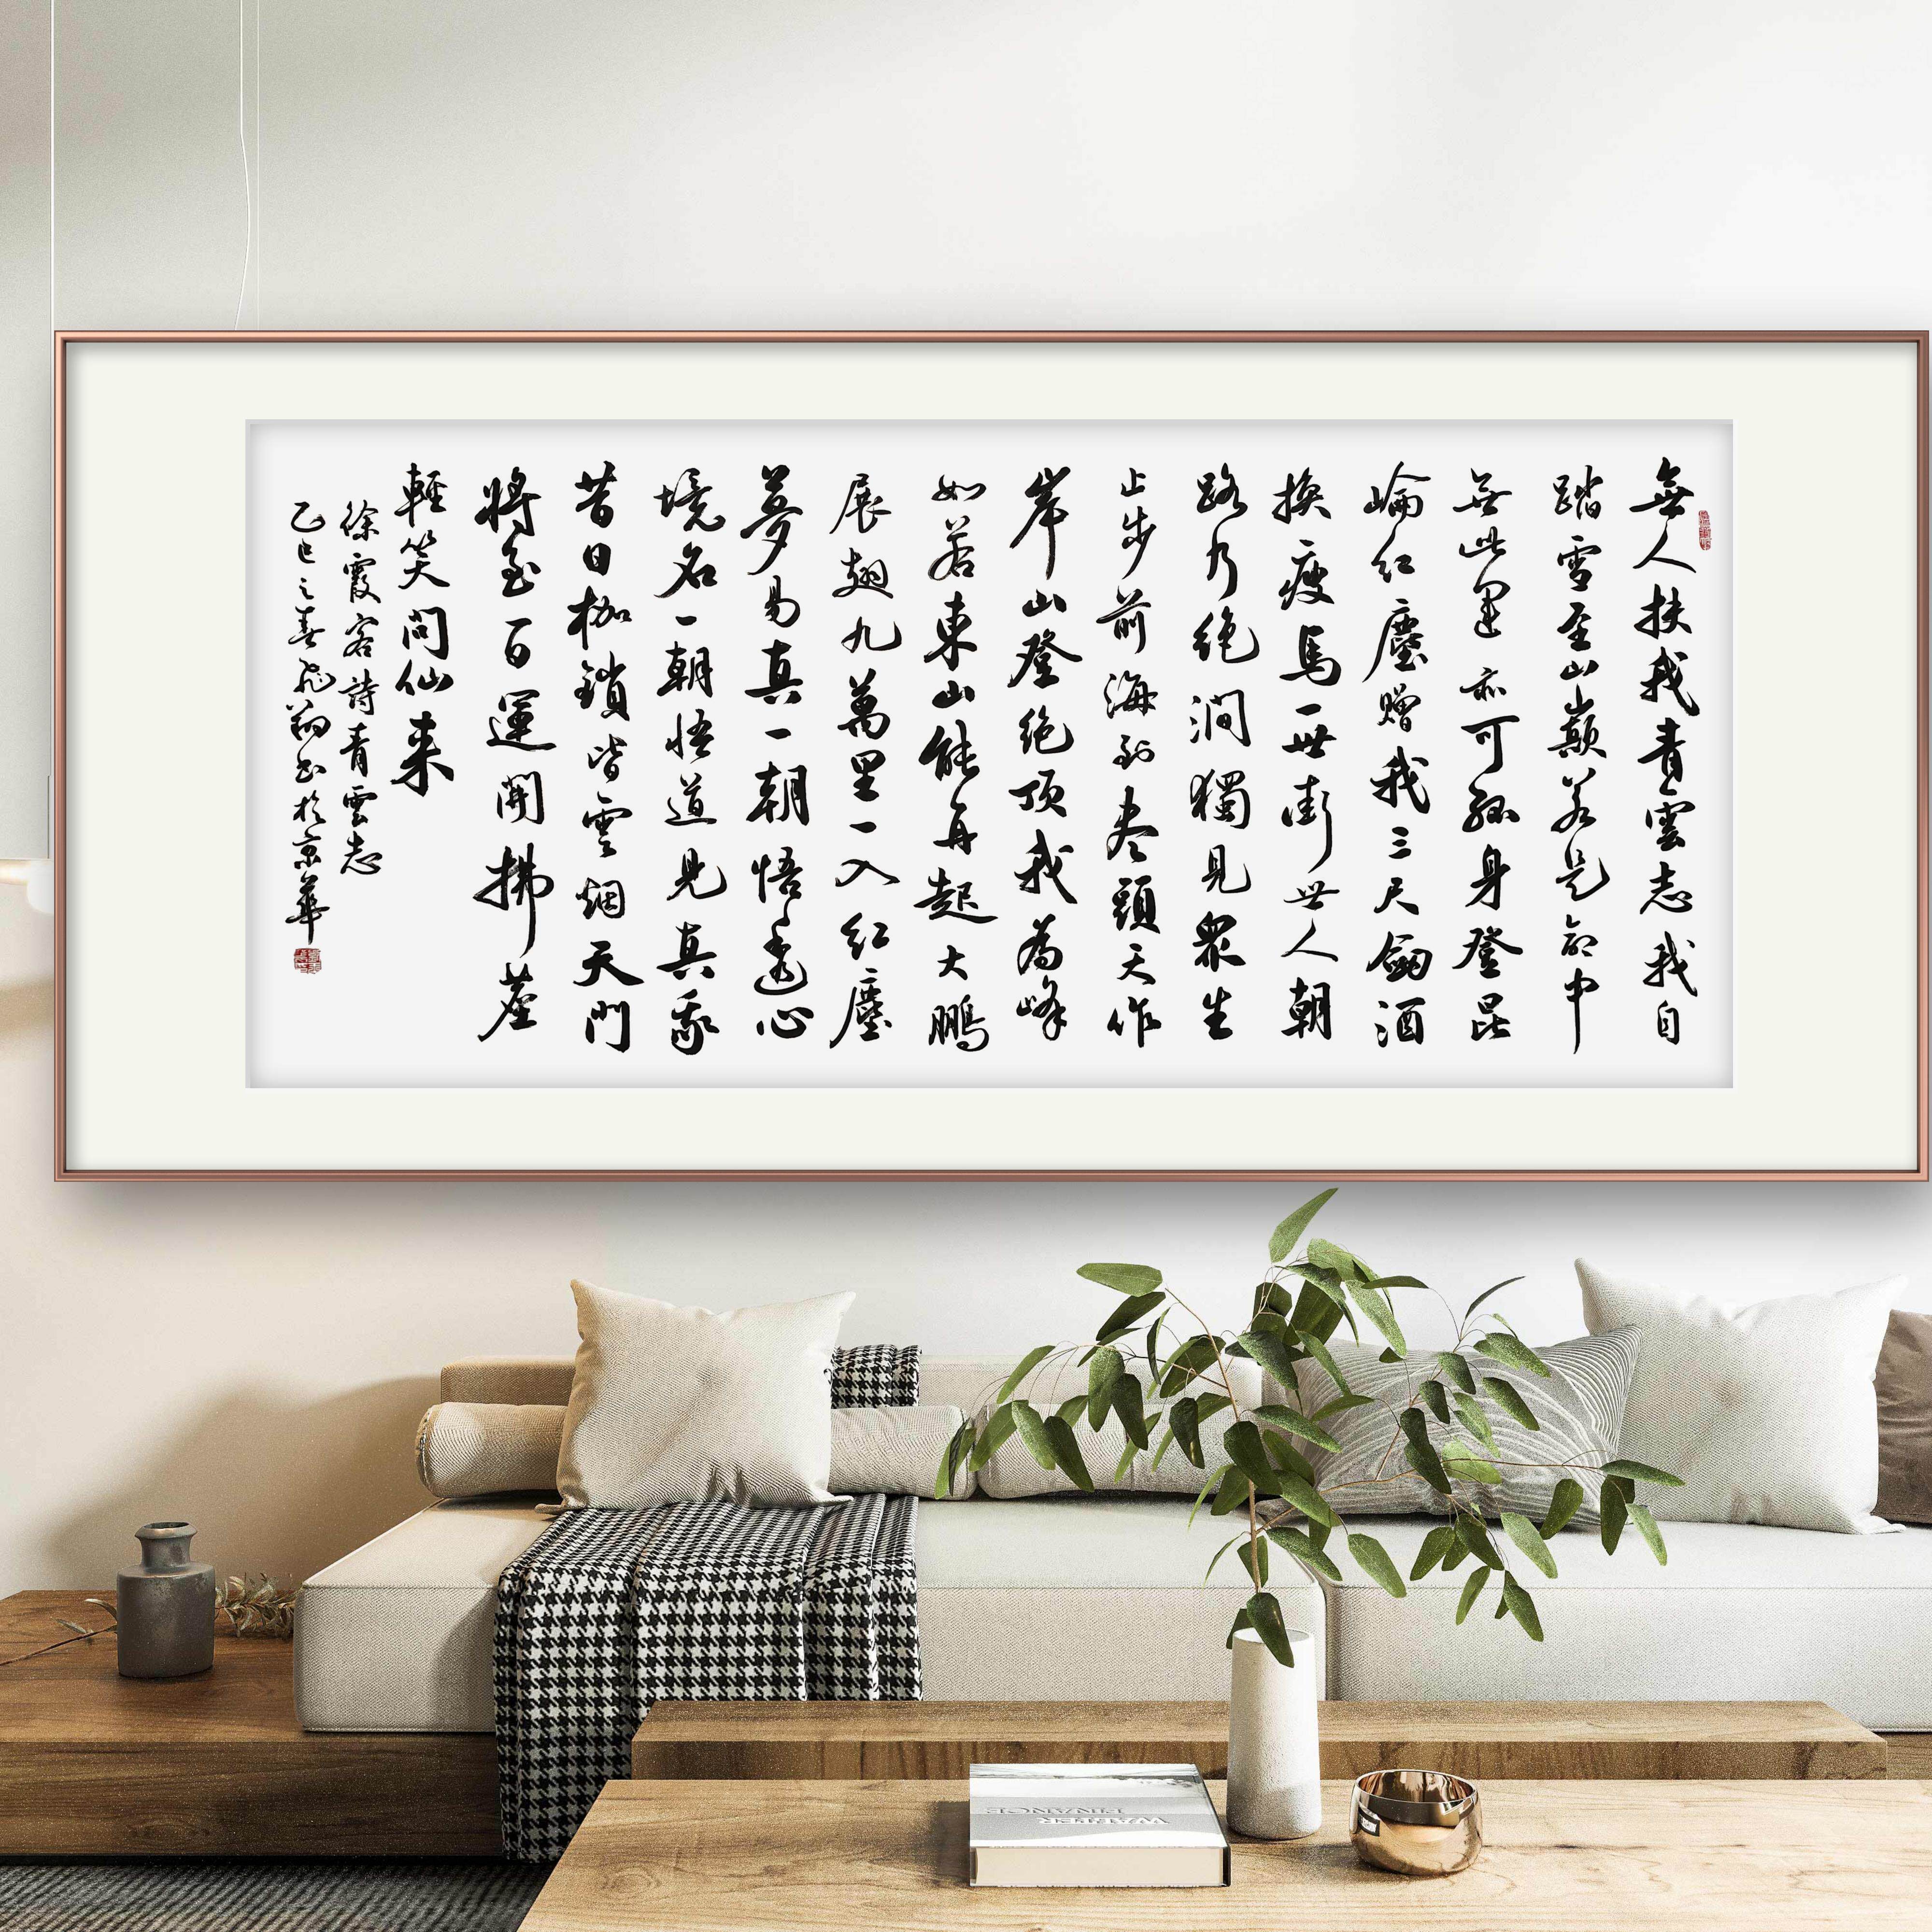 無人扶我青雲志我自
踏雪至山巔若是命中
無此運亦可孤身登昆
崙红塵赠我三尺劍酒
换瘦馬一世街世人朝
路乃绝澗獨見眾生
止步前海到尽頭天作
岸山登绝顶我為峰
如若東山能再起大鵬
展翅九萬里一入红塵
夢易真一朝悟透心
境名一朝悟道見真我
昔日枷鎖皆雲烟天門
將至百運開拂塵
輕笑問仙来
徐霞客詩青雲志
乙巳之春飛翔書於京華